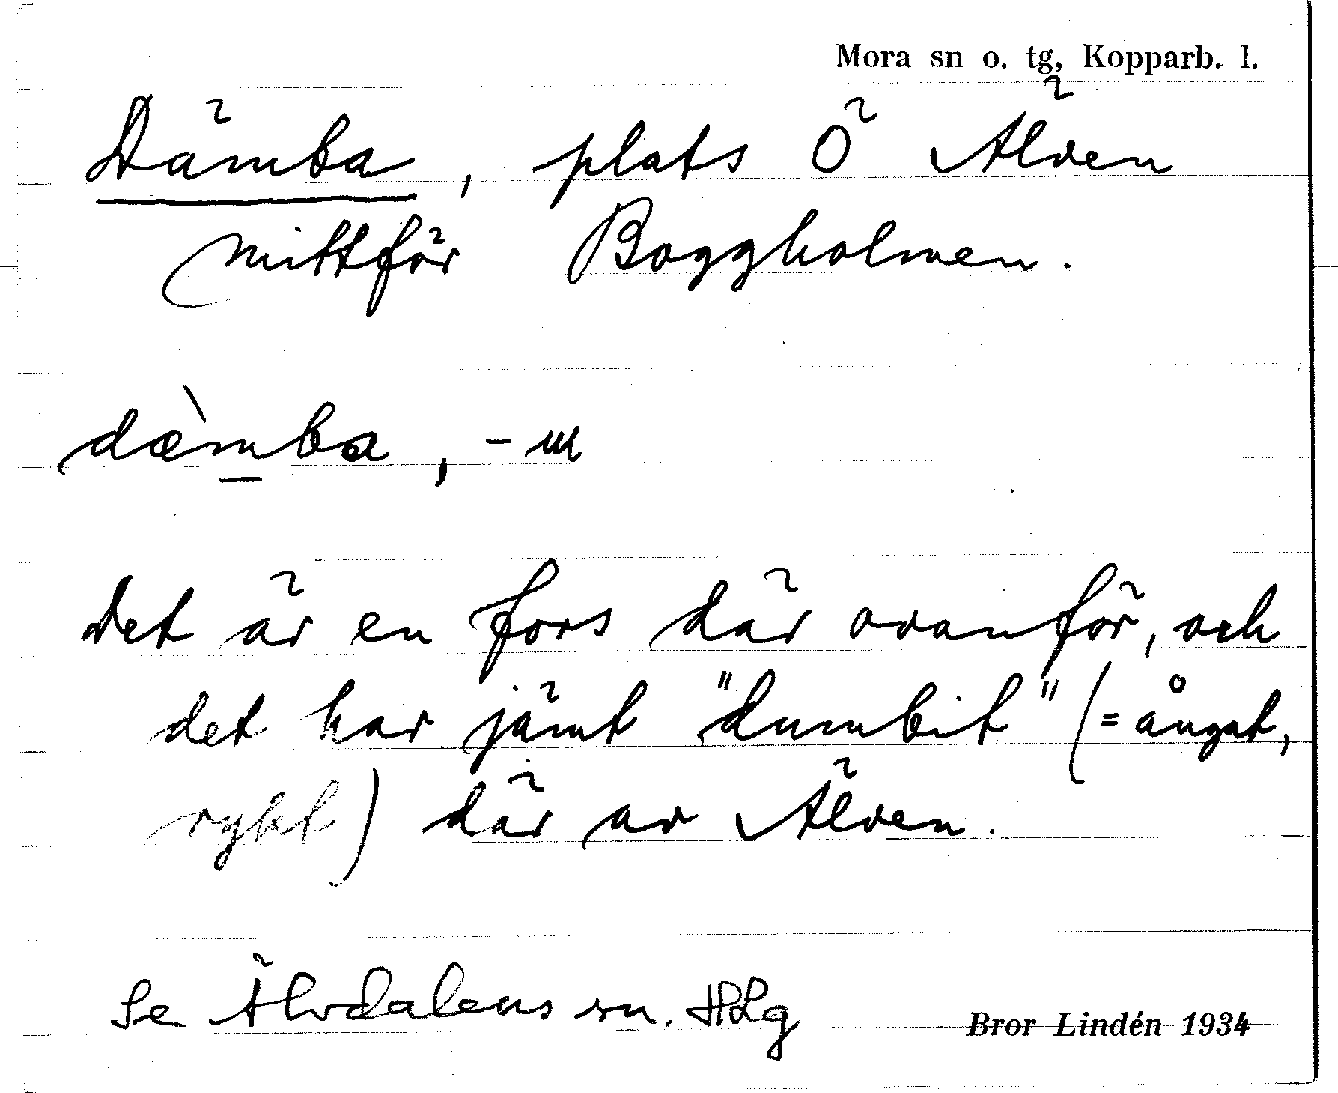 Mora sn o. tg, Kopparb. l.
Dämba, plats Ö Älven
mittför Boggholmen.
dæ̀mba, -m
Det är en fors där ovanför, och
det har jämt "dumbit" (= ångat,
rykt) där av Älven.
Se Älvdalens sn. HLg
Bror Lindén 1934